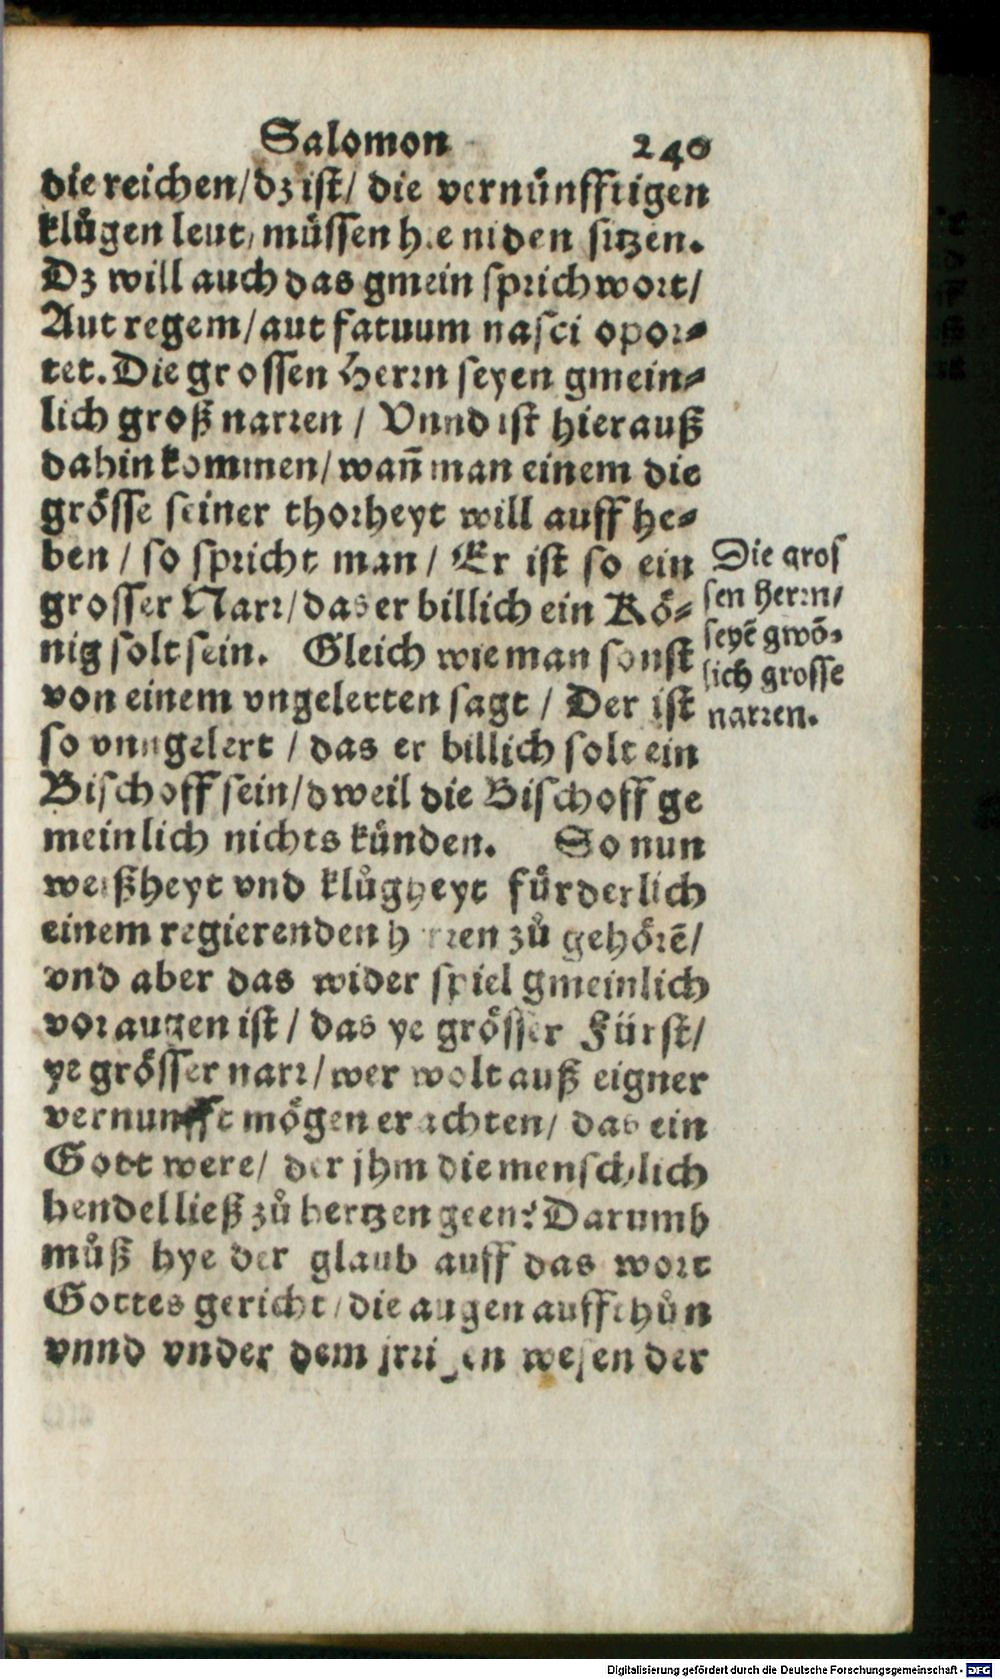 Salomon 240
die reichen/dz ist/ die vernünfftigen
klůgen leut, müssen hie niden sitzen.
Dz will auch das gmein sprichwort/
Aut regem/aut fatuum nasci opor-
tet. Die grossen Herrn seyen gmein-
lich groß narren / Vnnd ist hierauß
dahin kommen/wañ man einem die
grösse seiner thorheyt will auff he-
ben / so spricht man / Er ist so ein
grosser Narr/das er billich ein Kö-
nig solt sein. Gleich wie man sonst
von einem vngelerten sagt / Der ist
so vnngelert / das er billich solt ein
Bischoff sein/dweil die Bischoff ge
meinlich nichts künden. So nun
weißheyt vnd klůgheyt fürderlich
einem regierenden herren zů gehörē/
vnd aber das wider spiel gmeinlich
vor augen ist / das ye grösser Fürst/
ye grösser narr/wer wolt auß eigner
vernunfft mögen erachten/ das ein
Gott were/ der jhm die menschlich
hendel ließ zů hertzen geen? Darumb
můß hye der glaub auff das wort
Gottes gericht/die augen auffthůn
vnnd vnder dem jrrigen wesen der
Die gros
sen Herrn/
seyē gwō-
lich grosse
narren.
Digitalisierung gefördert durch die Deutsche Forschungsgemeinschaft - DFG